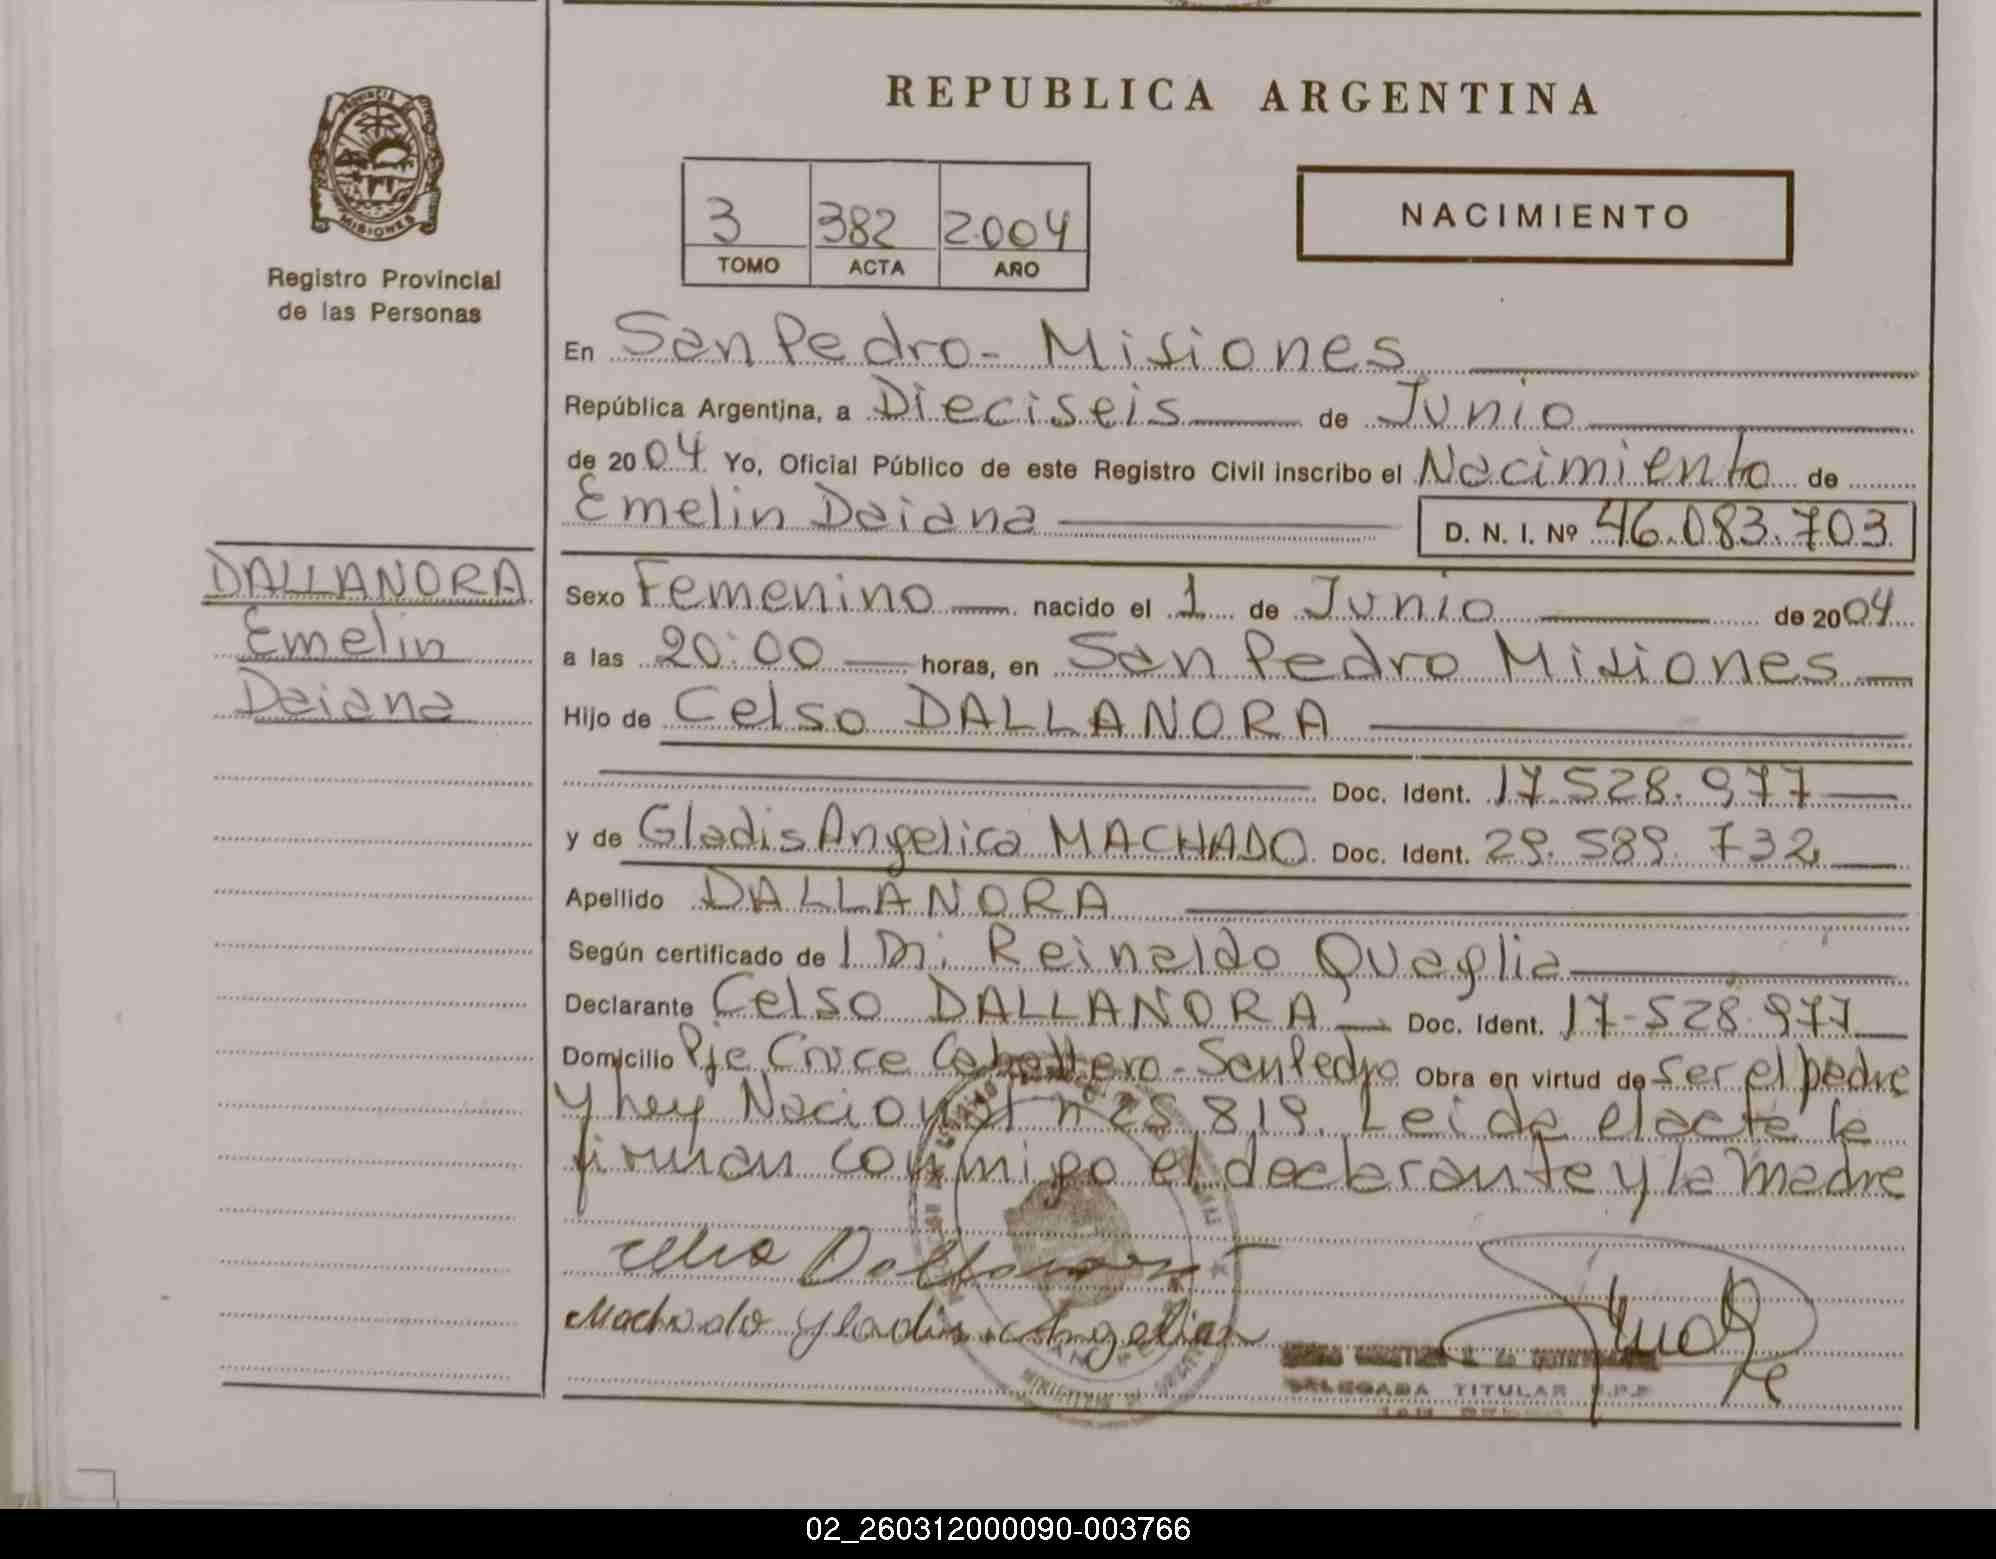 REPUBLICA ARGENTINA
PROVINCIA DE
MISIONES
Registro Provincial
de las Personas
3 382 2004
TOMO ACTA AÑO
NACIMIENTO
En San Pedro - Misiones
República Argentina, a Dieciseis de Junio
de 2004 Yo, Oficial Público de este Registro Civil inscribo el Nacimiento de
Emelin Daiana D. N. I. Nº 46.083.703
DALLANORA
Emelin
Daiana
Sexo Femenino nacido el 1 de Junio de 2004
a las 20:00 horas, en San Pedro Misiones
Hijo de Celso DALLANORA
Doc. Ident. 17.528.977
y de Gladis Angelica MACHADO Doc. Ident. 29.589.732
Apellido DALLANORA
Según certificado de Reinaldo Quaglia
Declarante Celso DALLANORA Doc. Ident. 17-528.977
Domicilio Pje Cruce Caballero - San Pedro Obra en virtud de ser el padre
y ley Nacional nº 25.819. Leida el acta la
firman conmigo el declarante y la madre
Celso Dallanora
Machado Gladis Angelica
DELEGADA TITULAR R.P.P.
SAN PEDRO
02_260312000090-003766